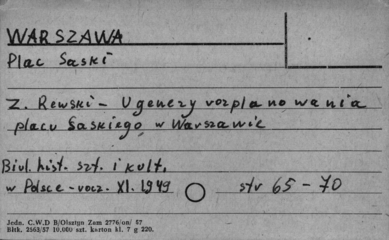 WARSZAWA
Plac Saski
Z. Rewski - U genezy rozplanowania
placu Saskiego w Warszawie
Biul. hist. szt. i kult.
w Polsce - rocz. XI. 1949 str 65-70
Jedn. C.W.D B/Olsztyn Zam 2776/on/ 57
Bltk. 2563/57 10.000 szt. karton kl. 7 g 220.